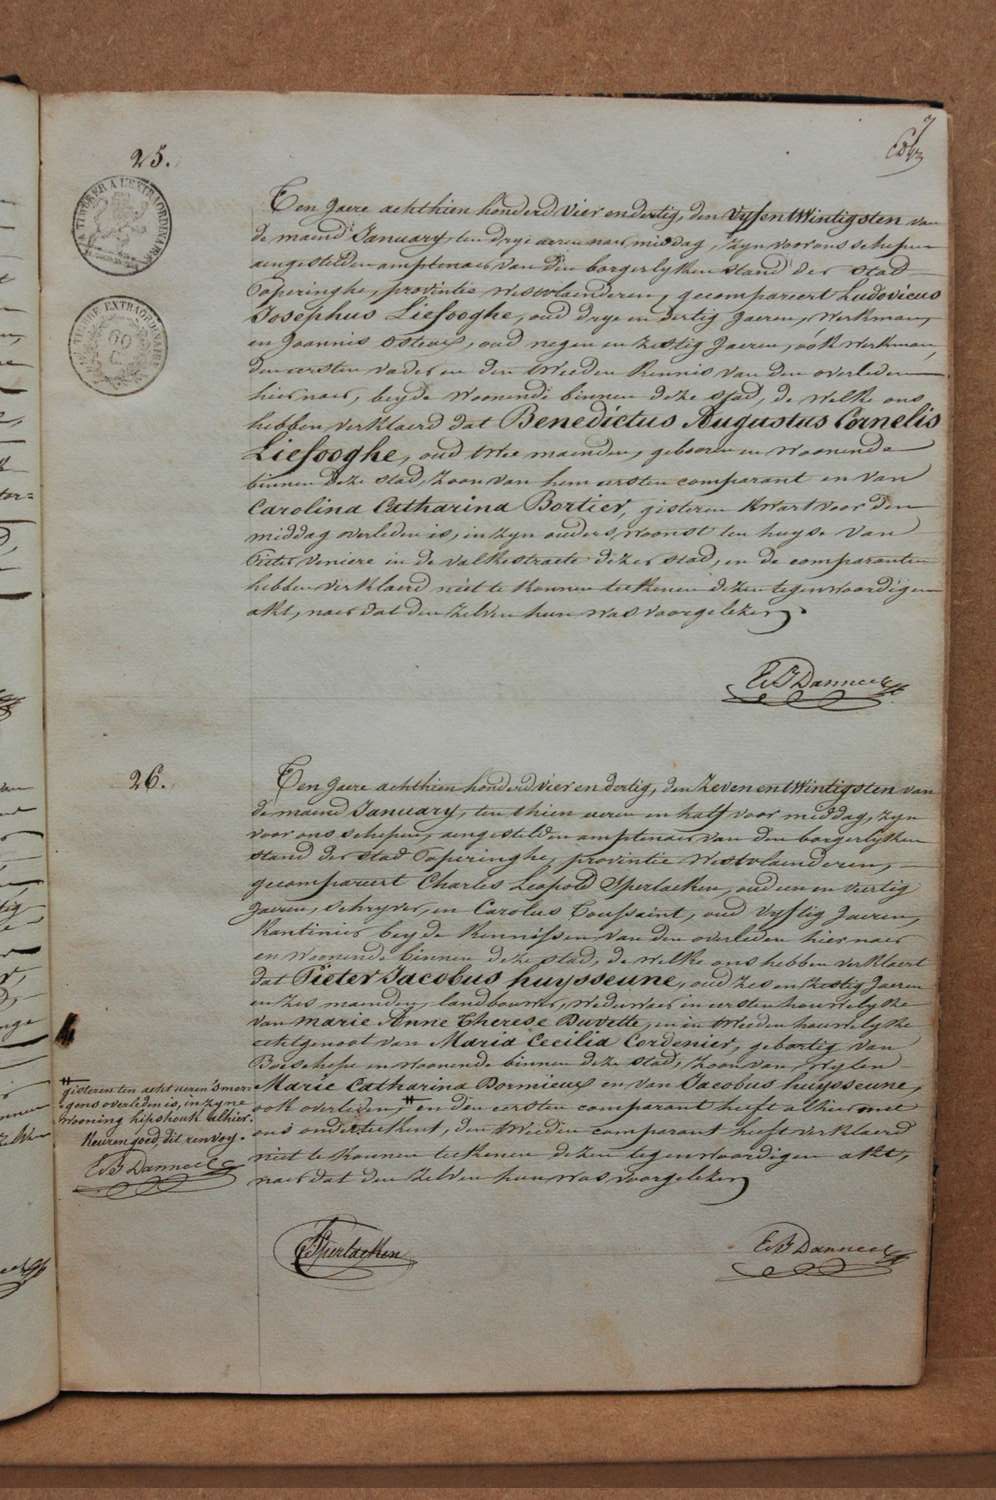 7
25.
A TIMBRER A L'EXTRAORDINAIRE
TIMBRE EXTRAORDINAIRE
Ten Jaere achthien honderd vier en dertig, den vyf en twintigsten van
de maend January, ten drye ueren naer middag, zyn voor ons schepen
aengestelden amptenaer van den borgerlyken stand der stad
Poperinghe, provintie Westvlaenderen, gecompareert Ludovicus
Josephus Liefooghe, oud drye en dertig Jaeren, Werkman,
en Joannis Osteux, oud negen en zestig Jaeren, óók werkman,
den eersten vader en den tweeden kennis van den overleden
hier naer, beyde woonende binnen deze stad, de welke ons
hebben verklaerd dat Benedictus Augustus Cornelis
Liefooghe, oud twee maenden, gebooren en woonende
binnen deze stad, zoon van hem eersten comparant en van
Carolina Catharina Bortier, gisteren kwart voor den
middag overleden is, in zyn ouders woonst ten huyse van
Pieter Veniere in de valkestraete dezer stad, en de comparanten
hebben verklaerd niet te konnen teekenen dezen tegenwoordigen
akt, naer dat den zelven hun was voorgelezen.
26.
Ten Jaere achthien honderd vier en dertig, den Zeven en twintigsten van
de maend January, ten thien ueren en half voor middag, zyn
voor ons schepen, aengestelden amptenaer van den borgerlyken
stand der stad Poperinghe, provintie Westvlaenderen,
gecompareert Charles Leopold Sperlaeken, oud een en veertig
Jaeren, schryver, en Carolus Toussaint, oud vyftig Jaeren,
Kantinier beyde kennissen van den overleden hier naer
en woonende binnen deze stad, de welke ons hebben verklaert
dat Pieter Jacobus huysseune, oud zes en zestig Jaeren
en zes maenden, landbouwer, weduwaer in eersten houwelyke
van Marie Anne Therese Duvette, en in tweeden houwelyke
echtgenoot van Maria Cecilia Cordenier, gebortig van
Boeschepe en woonende binnen deze stad, zoon van wylen
Marie Catharina Dormieux en van Jacobus huysseune,
ook overleden, # en den eersten comparant heeft alhier met
ons onderteekent, den tweeden comparant heeft verklaerd
niet te konnen teekenen dezen tegenwoordigen akt,
naer dat den zelven hun was voorgelezen
# gisteren ten acht ueren 's mor-
gens overleden is, in zyne
wooning hipshouk alhier.
Keuren goed, dit renvoy.
Sperlaeken